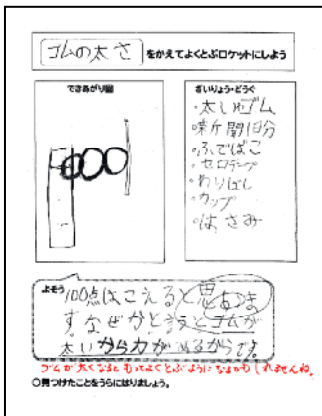 ゴムの太さ をかえてよくとぶロケットにしよう
できあがり図
ざいりょう・どうぐ
・太いゴム
・新聞1日分
・ふでばこ
・セロテープ
・わりばし
・カップ
・はさみ
よそう
100点はこえると思いま
す。なぜかと言うとゴムが
太いから力が あるからです。
ゴムが太くなるともっとよくとぶようになるかもしれませんね。
○見つけたことをうらにはりましょう。